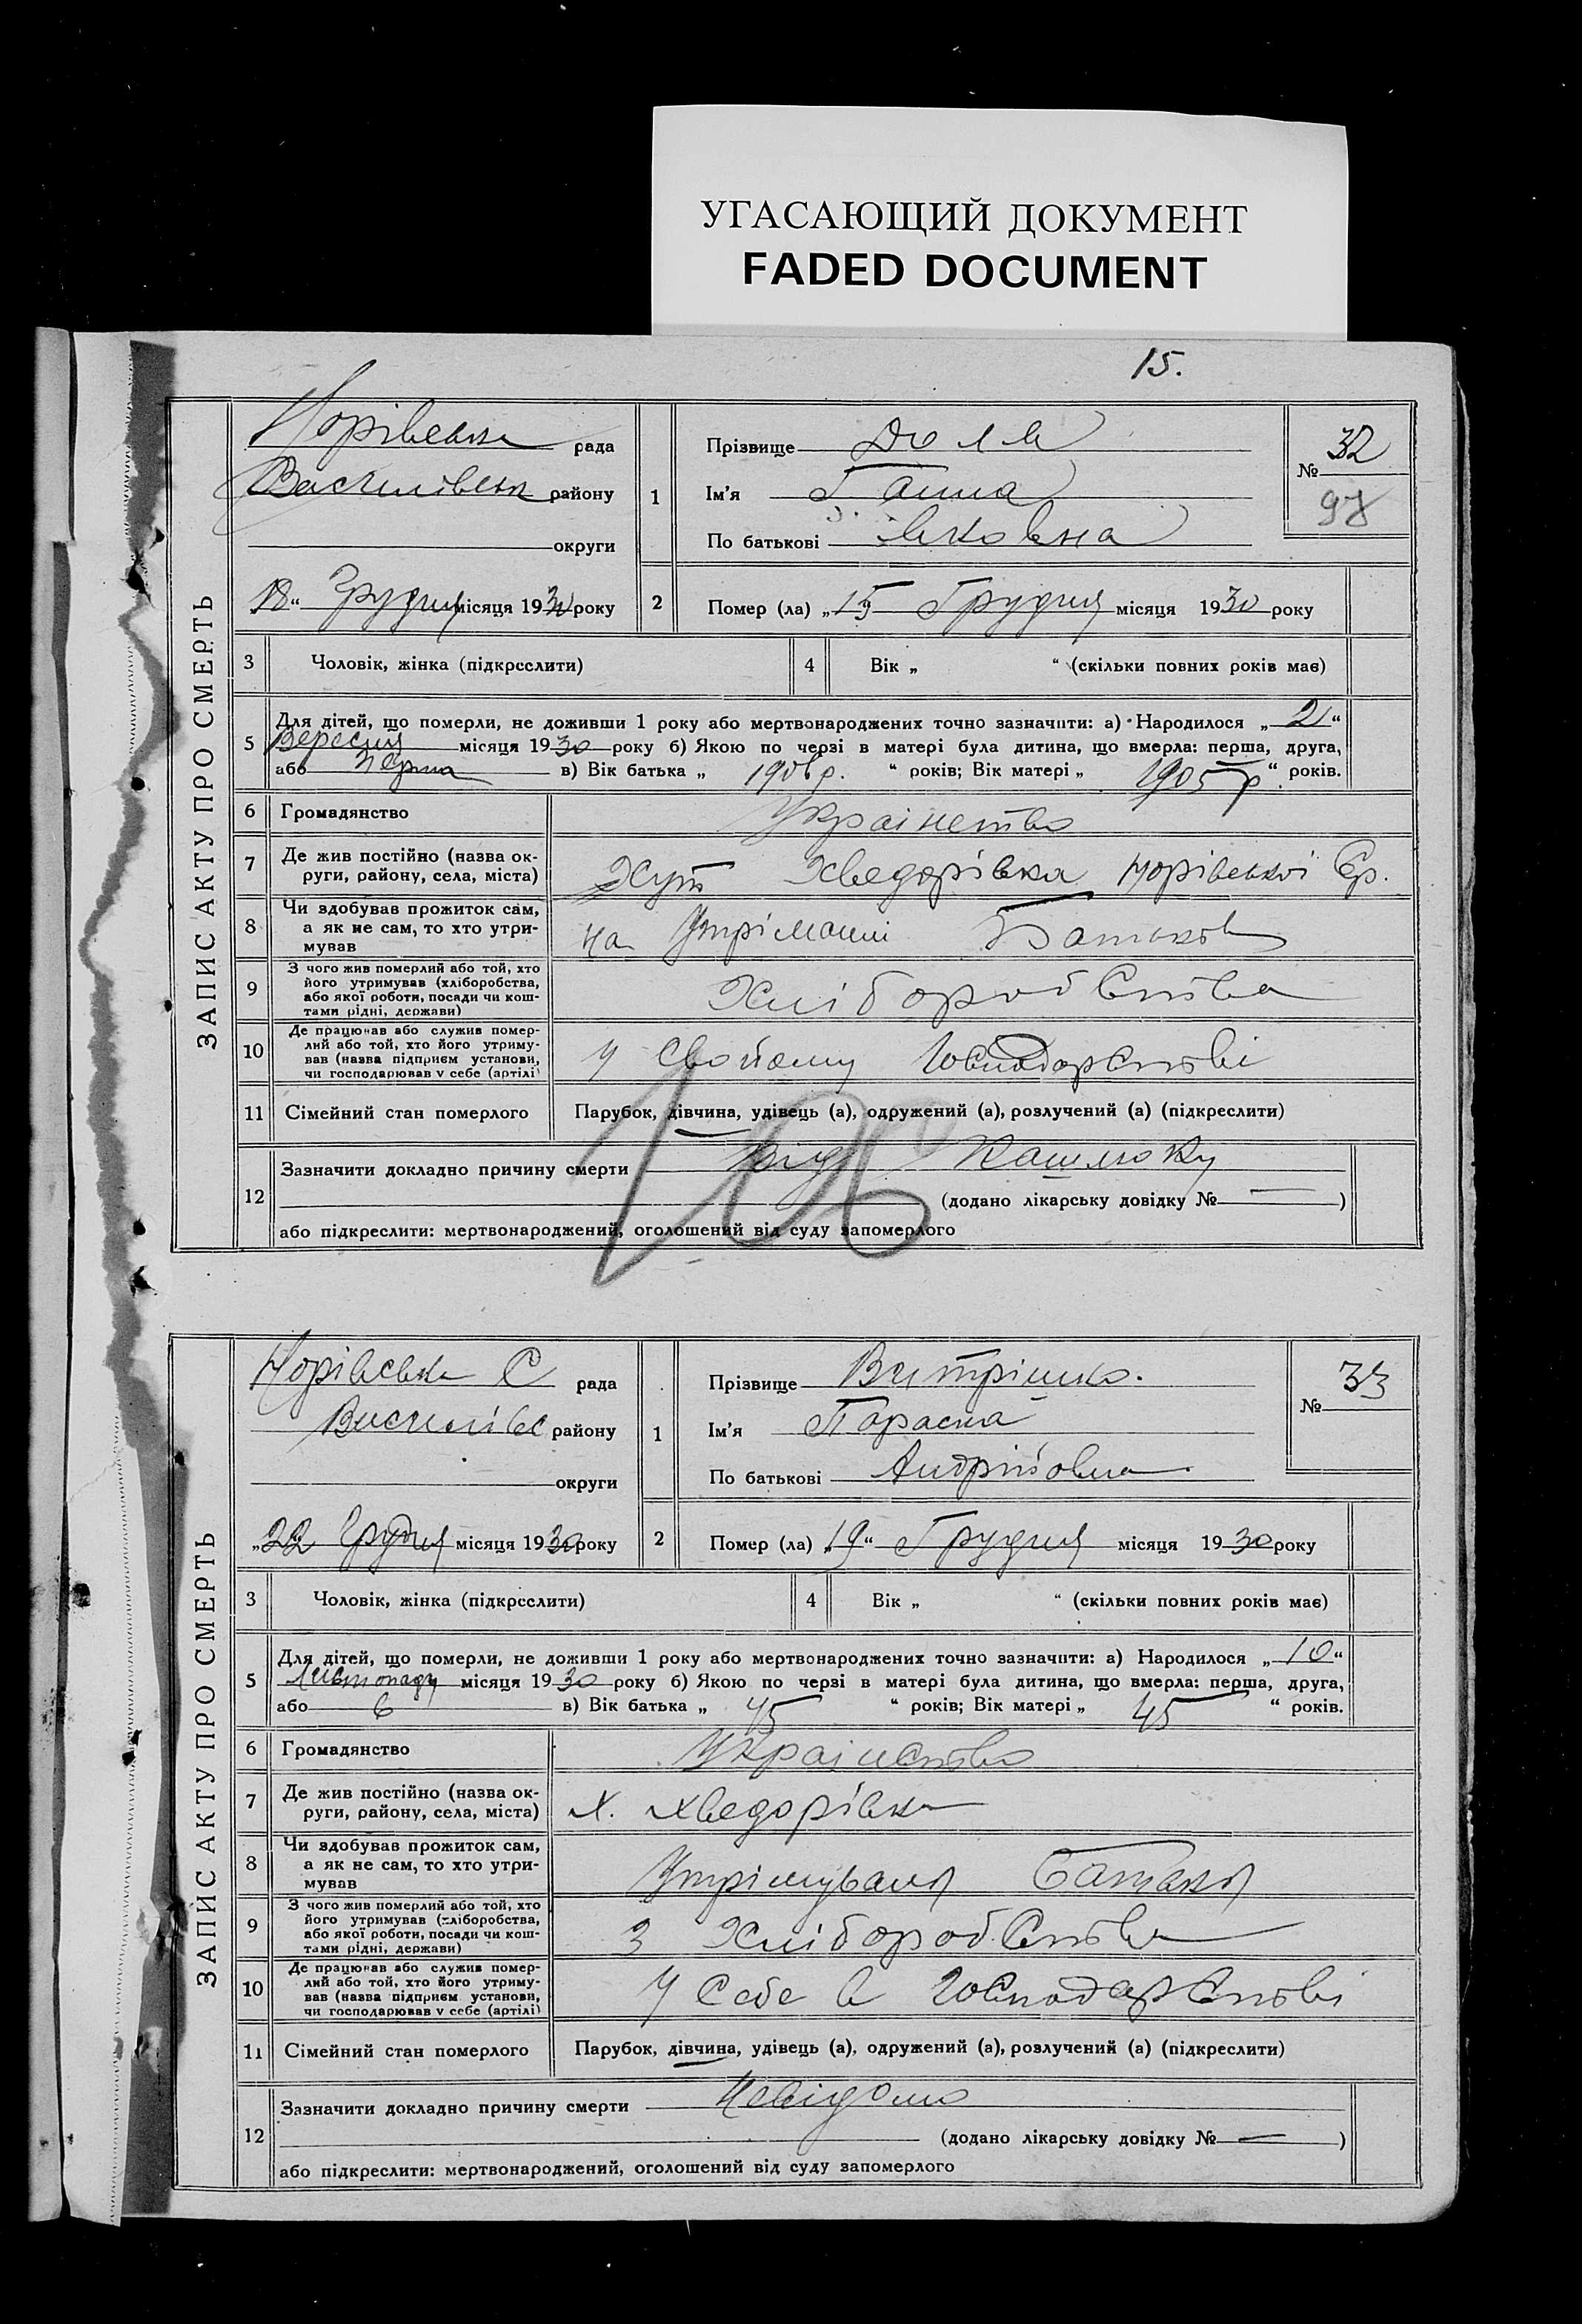 УГАСАЮЩИЙ ДОКУМЕНТ
FADED DOCUMENT
15.
ЗАПИС АКТУ ПРО СМЕРТЬ
рада
району
округи
18 Грудня місяця 1930 року
1
Прізвище Доля
Ім'я Ганна
По батькові
№ 32
98
2 Помер (ла) „15 Грудня місяця 1930 року
3 Чоловік, жінка (підкреслити)
4 Вік „ “ (скільки повних років має)
5 Для дітей, що померли, не доживши 1 року або мертвонароджених точно зазначити: а) Народилося „21“
Вересня місяця 1930 року б) Якою по черзі в матері була дитина, що вмерла: перша, друга,
або перша в) Вік батька „ 1906 р. “ років; Вік матері „ 1905 р “ років.
6 Громадянство Українство
7 Де жив постійно (назва округи, району, села, міста) Хут Хведорівка Норівськоі Ср.
8 Чи здобував прожиток сам, а як не сам, то хто утримував на Утріманні Батьков
9 З чого жив померлий або той, хто його утримував (хліборобства, або якої роботи, посади чи коштами рідні, держави) Хліборобства
10 Де працював або служив померлий або той, хто його утримував (назва підприєм установи, чи господарював у себе (артілі) У свойому господарстві
11 Сімейний стан померлого Парубок, дівчина, удівець (а), одружений (а), розлучений (а) (підкреслити)
12 Зазначити докладно причину смерти Від Кашлюку
(додано лікарську довідку № — )
або підкреслити: мертвонароджений, оголошений від суду запомерлого
ЗАПИС АКТУ ПРО СМЕРТЬ
Норівська С рада
району
округи
„22 Грудня місяця 1930 року
1
Прізвище Витрішко.
Ім'я Параска
По батькові Андрійовна
№ 33
2 Помер (ла) „19“ Грудня місяця 1930 року
3 Чоловік, жінка (підкреслити)
4 Вік „ “ (скільки повних років має)
5 Для дітей, що померли, не доживши 1 року або мертвонароджених точно зазначити: а) Народилося „10“
Листопаду місяця 1930 року б) Якою по черзі в матері була дитина, що вмерла: перша, друга,
або 6 в) Вік батька „ 45 “ років; Вік матері „ 45 “ років.
6 Громадянство Українство
7 Де жив постійно (назва округи, району, села, міста) х. Хведорівка
8 Чи здобував прожиток сам, а як не сам, то хто утримував Утрімувала батька
9 З чого жив померлий або той, хто його утримував (хліборобства, або якої роботи, посади чи коштами рідні, держави) З Хліборобства
10 Де працював або служив померлий або той, хто його утримував (назва підприєм установи, чи господарював у себе (артілі) У себе в господарстві
11 Сімейний стан померлого Парубок, дівчина, удівець (а), одружений (а), розлучений (а) (підкреслити)
12 Зазначити докладно причину смерти Невідомо
(додано лікарську довідку № — )
або підкреслити: мертвонароджений, оголошений від суду запомерлого